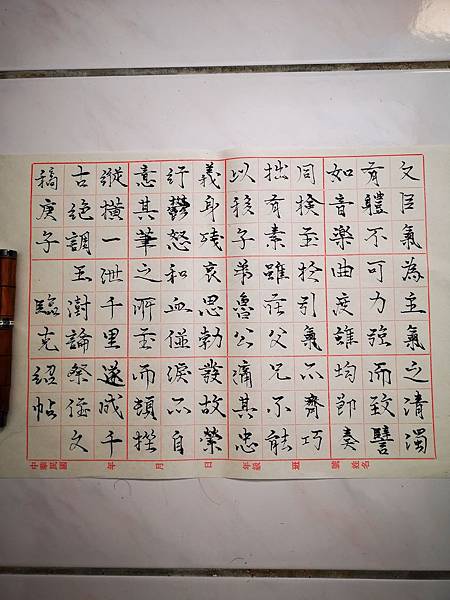 文㠯氣為主氣之清濁
有體不可力強而致譬
如音樂曲度雖均節奏
同檢至於引氣不齊巧
拙有素雖在父兄不能
以移子弟魯公痛其忠
義身殘哀思勃發故縈
紆鬱怒和血迸淚不自
意其筆之所至而頓挫
縱橫一泄千里遂成千
古絕調 王澍論祭侄文
稿庚子 臨克紹帖
中華民國 年 月 日 年級 班 號 姓名